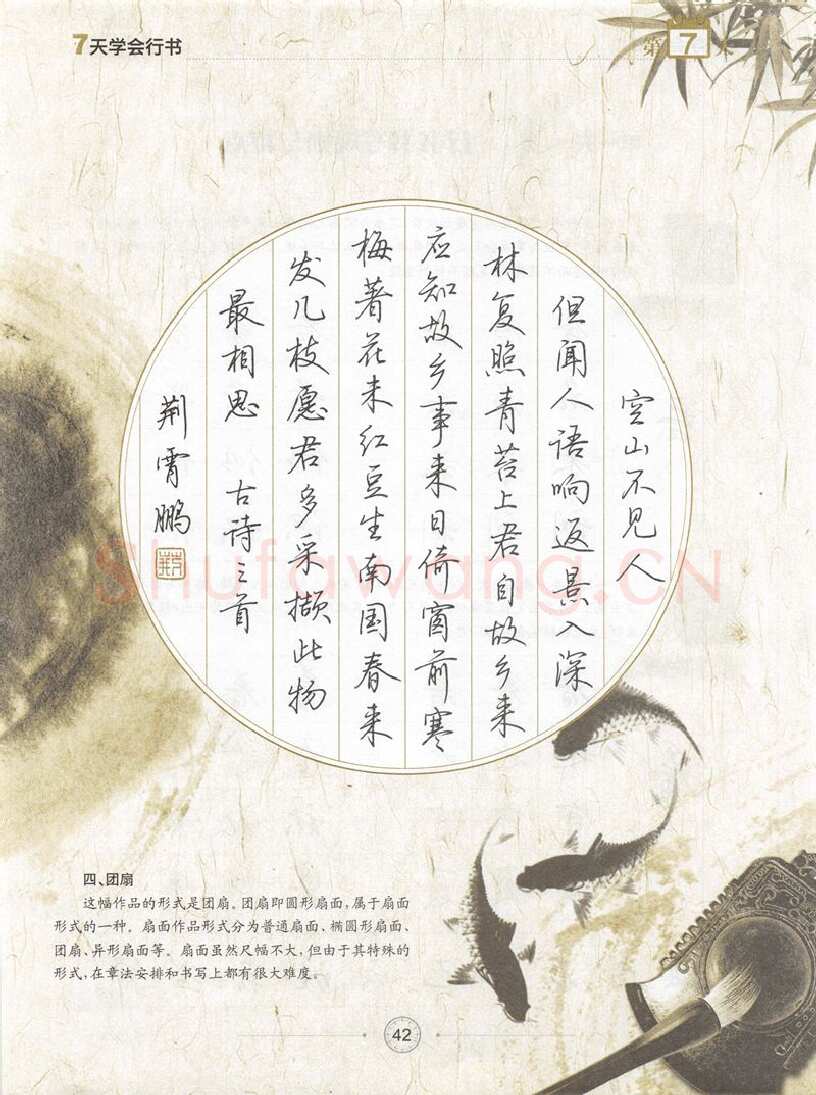 7天学会行书
第7天
空山不见人
但闻人语响返景入深
林复照青苔上君自故乡来
应知故乡事来日倚窗前寒
梅著花未红豆生南国春来
发几枝愿君多采撷此物
最相思 古诗三首
荆霄鹏
Shufawang.CN
四、团扇
这幅作品的形式是团扇。团扇即圆形扇面,属于扇面
形式的一种。扇面作品形式分为普通扇面、椭圆形扇面、
团扇、异形扇面等。扇面虽然尺幅不大,但由于其特殊的
形式,在章法安排和书写上都有很大难度。
42